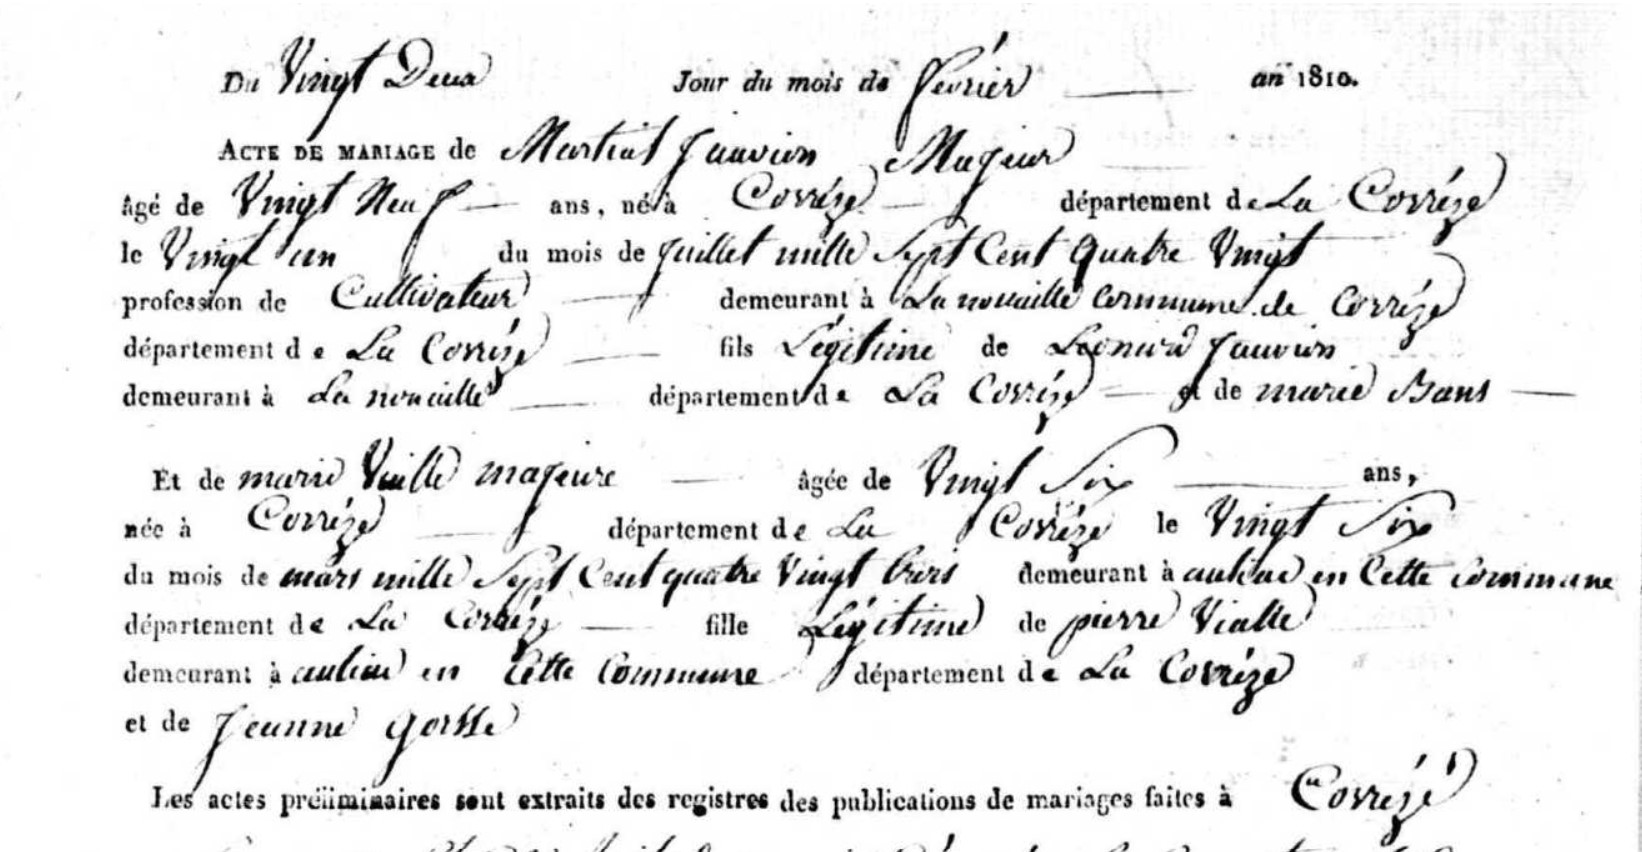 Du Vingt Deux Jour du mois de février an 1810.
ACTE DE MARIAGE de Martial Jauvion Majeur
âgé de Vingt Neuf ans, né à Corrèze département de La Corrèze
le Vingt un du mois de juillet mille Sept Cent quatre Vingt
profession de Cultivateur demeurant à La nouaille commune de Corrèze
département de La Corrèze fils Légitime de Léonard Jauvion
demeurant à La nouaille département de La Corrèze et de marie Bans
Et de marie Vialle majeure âgée de Vingt Six ans,
née à Corrèze département de La Corrèze le Vingt Six
du mois de mars mille Sept Cent quatre Vingt trois demeurant à en Cette Commune
département de La Corrèze fille Légitime de pierre Vialle
demeurant à en Cette Commune département de La Corrèze
et de Jeanne gorsse
Les actes préliminaires sont extraits des registres des publications de mariages faites à Corrèze